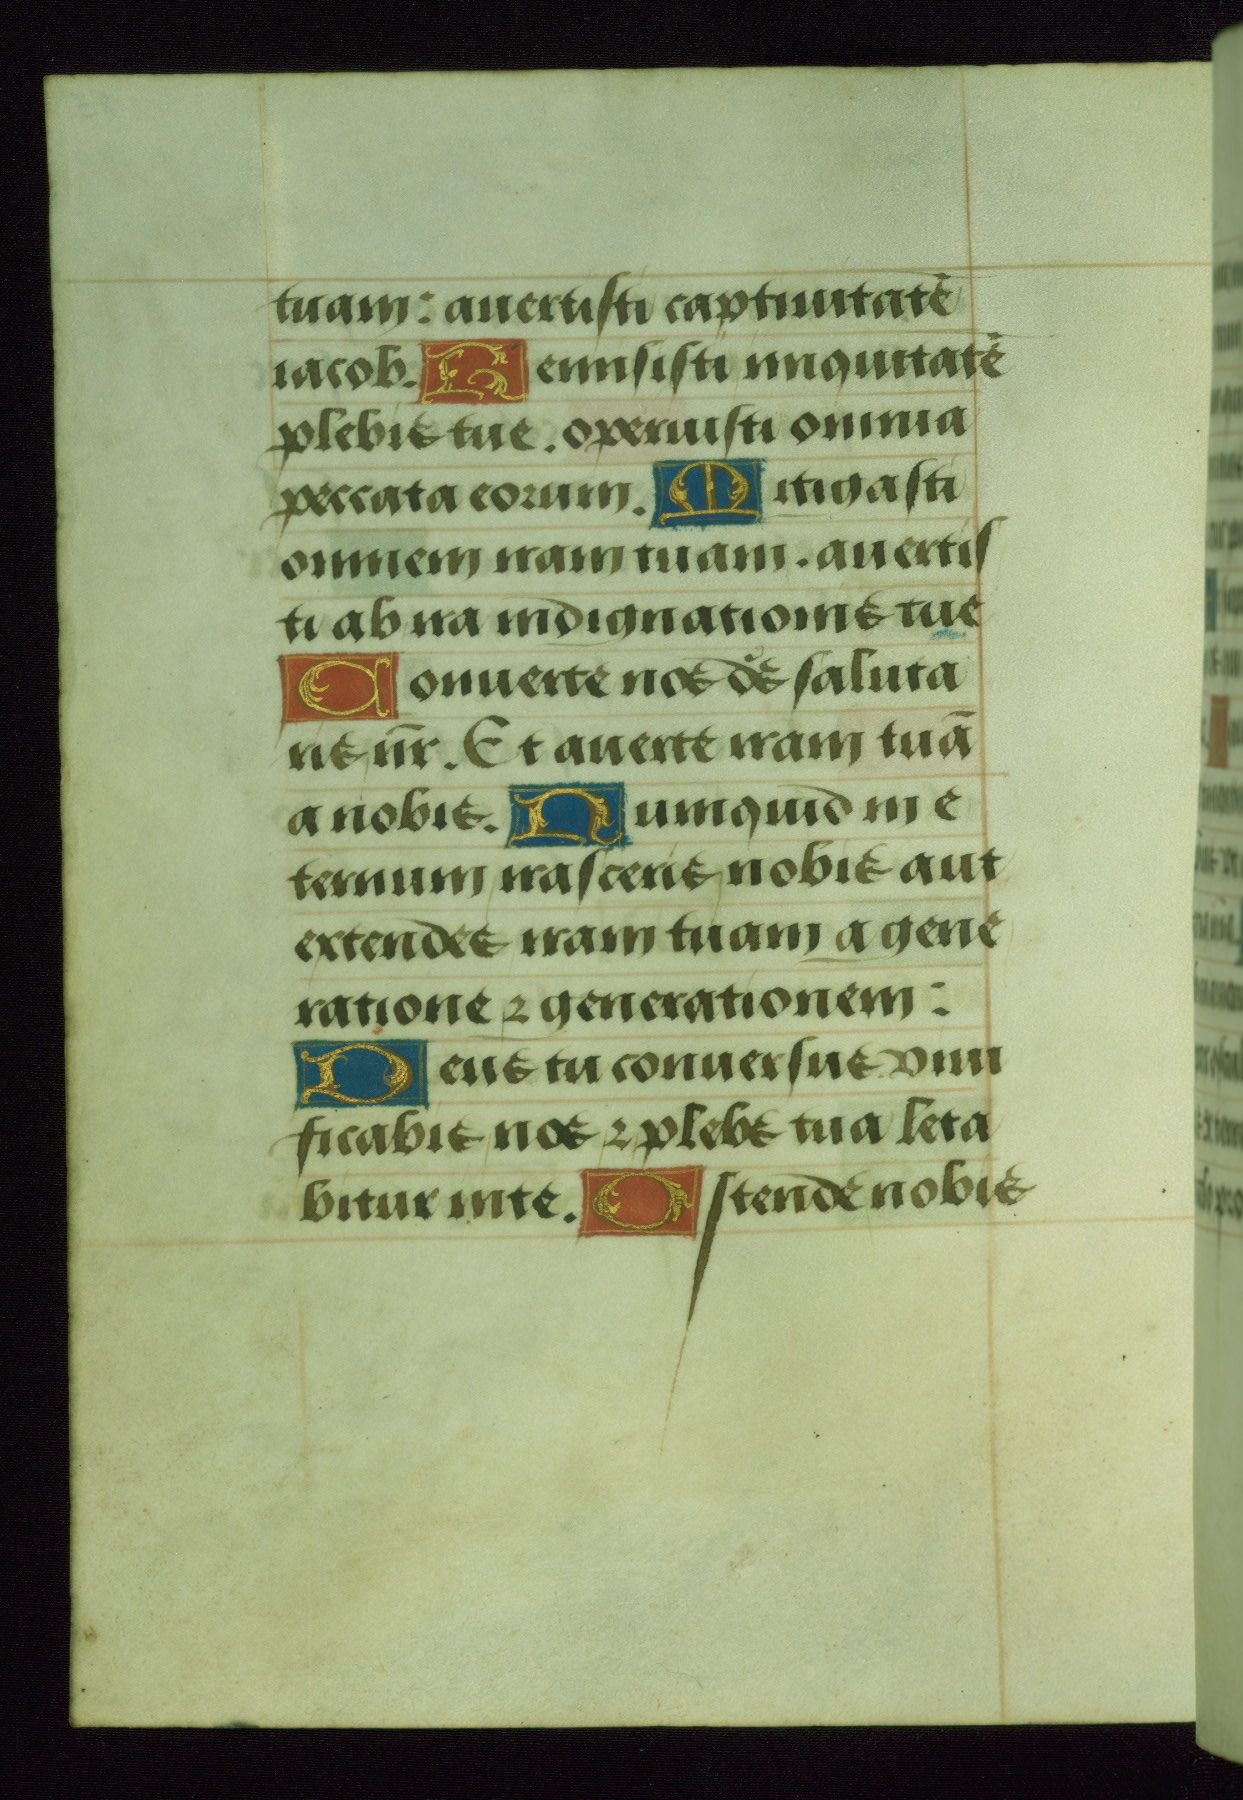 tuam: auertisti captiuitatē
iacob. Remisisti iniquitatē
plebis tue. operuisti omnia
peccata eorum. Mitigasti
omnem iram tuam. auertis
ti ab ira indignationis tue
Conuerte nos ds̄ saluta
ris nr̄. Et auerte iram tuā
a nobis. Numquid in e
ternum irasceris nobis aut
extendes iram tuam a gene
ratione ⁊ generationem:
Deus tu conuersus viui
ficabis nos ⁊ plebs tua leta
bitur in te. Ostende nobis